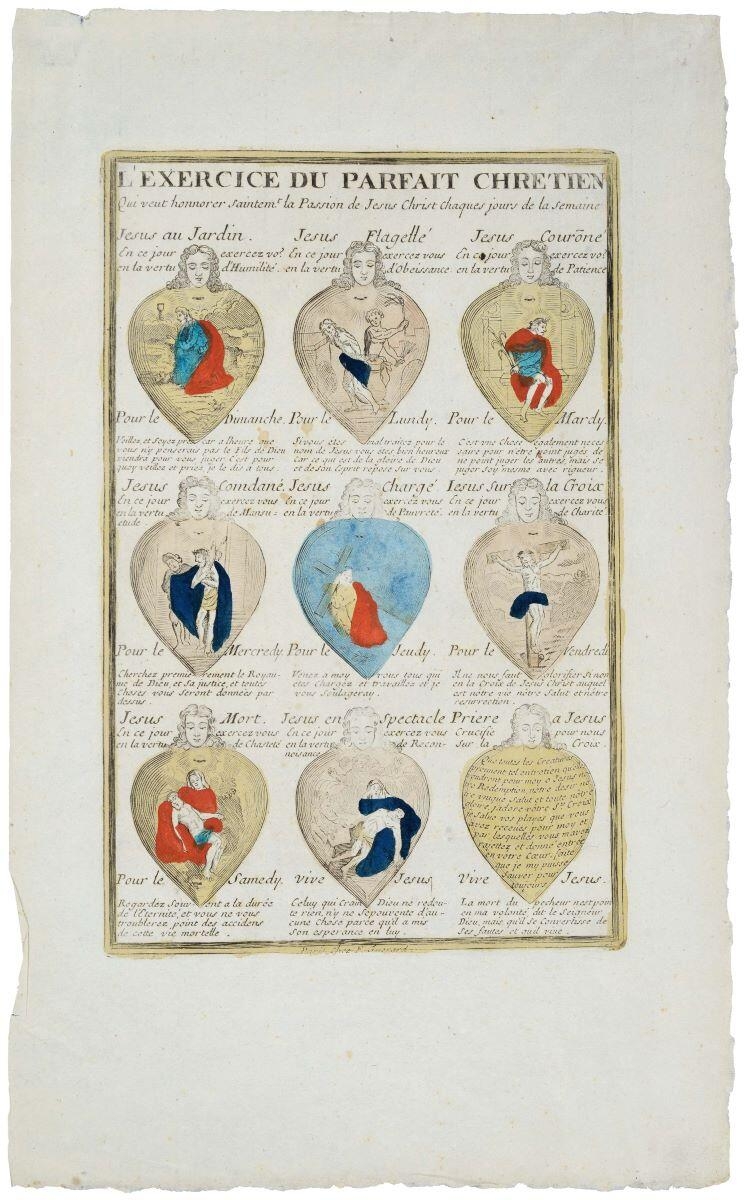 L'EXERCICE DU PARFAIT CHRETIEN
Qui veut honnorer Saintemt. la Passion de Jesus Christ Chaques jours de la Semaine
Jesus au Jardin.
En ce jour exercez vo9
en la vertu d'Humilité.
Pour le Dimanche.
Veillez, et Soyez prez car a lheure que
vous n'y penserais pas le Fils de Dieu
viendra pour vous juger. C'est pour
quoy veillez et priez je le dis a tous.
Jesus Flagellé
En ce jour exercez vous
en la vertu d'Obeissance.
Pour le Lundy.
Si vous etes mal traitez pour le
nom de Jesus vous etes bien heureux
Car ce qui est de la gloire de Dieu
et de son Esprit repose Sur vous.
Jesus Couroñé
En ce jour exercez vo9
en la vertu de Patience
Pour le Mardy.
C'est vne chose egalement neces
saire pour n'etre point jugés de
ne point juger les autres, mais Se
juger Soy mesme avec rigueur.
Jesus Comdané.
En ce jour exercez vous
en la vertu de Mansu=
etude
Pour le Mercredy.
Cherchez premierement le Royau-
me de Dieu, et Sa justice, et toutes
Choses vous Seront données par
dessus.
Jesus Chargé
En ce jour exercez vous
en la vertu de Pauvreté.
Pour le Jeudy.
Venez a moy vous tous qui
etes Chargez et travaillez et je
vous Soulageray.
Iesus Sur la Croix
En ce jour exercez vous
en la vertu de Charité
Pour le Vendredi
Il ne nous faut Glorifier Si non
en la Croix de Jesus Christ auquel
est nôtre vie nôtre Salut et nôtre
resurrection.
Jesus Mort.
En ce jour exercez vous
en la vertu de Chasteté
Pour le Samedy.
Regardez Souvent a la durée
de l'Eternité, et vous ne vous
troublerez point des accidens
de cette vie mortelle.
Jesus en Spectacle
En ce jour exercez vous
en la vertu de Recon-
noisance.
Vive Jesus
Celuy qui Craint Dieu ne redou-
te rien, n'y ne S'epouvente d'au-
cune Chose parce qu'il a mis
Son esperance en luy.
Priere a Jesus
Crucifie pour nous
Sur la Croix.
Que toutes les Creatures
tel entretien que
voudront pour moy o Jesus no
tre Redemption, nôtre desir nô
tre vnique Salut et toute nôtre
gloire, j'adore vôtre Ste. Croix
je Salue vos playes que vous
avez recoues pour moy et
par lesquelles vous m'avez
rajettez et donné entrée
en vôtre Cœur, faite
que je my puisse
Sauver pour
toujours
Vive Jesus.
La mort du pecheur nest point
en ma volonté, dit le Seigneur
Dieu, mais qu'il se Convertisse de
Ses fautes et quil vive.
Paris Chez F. Guerard